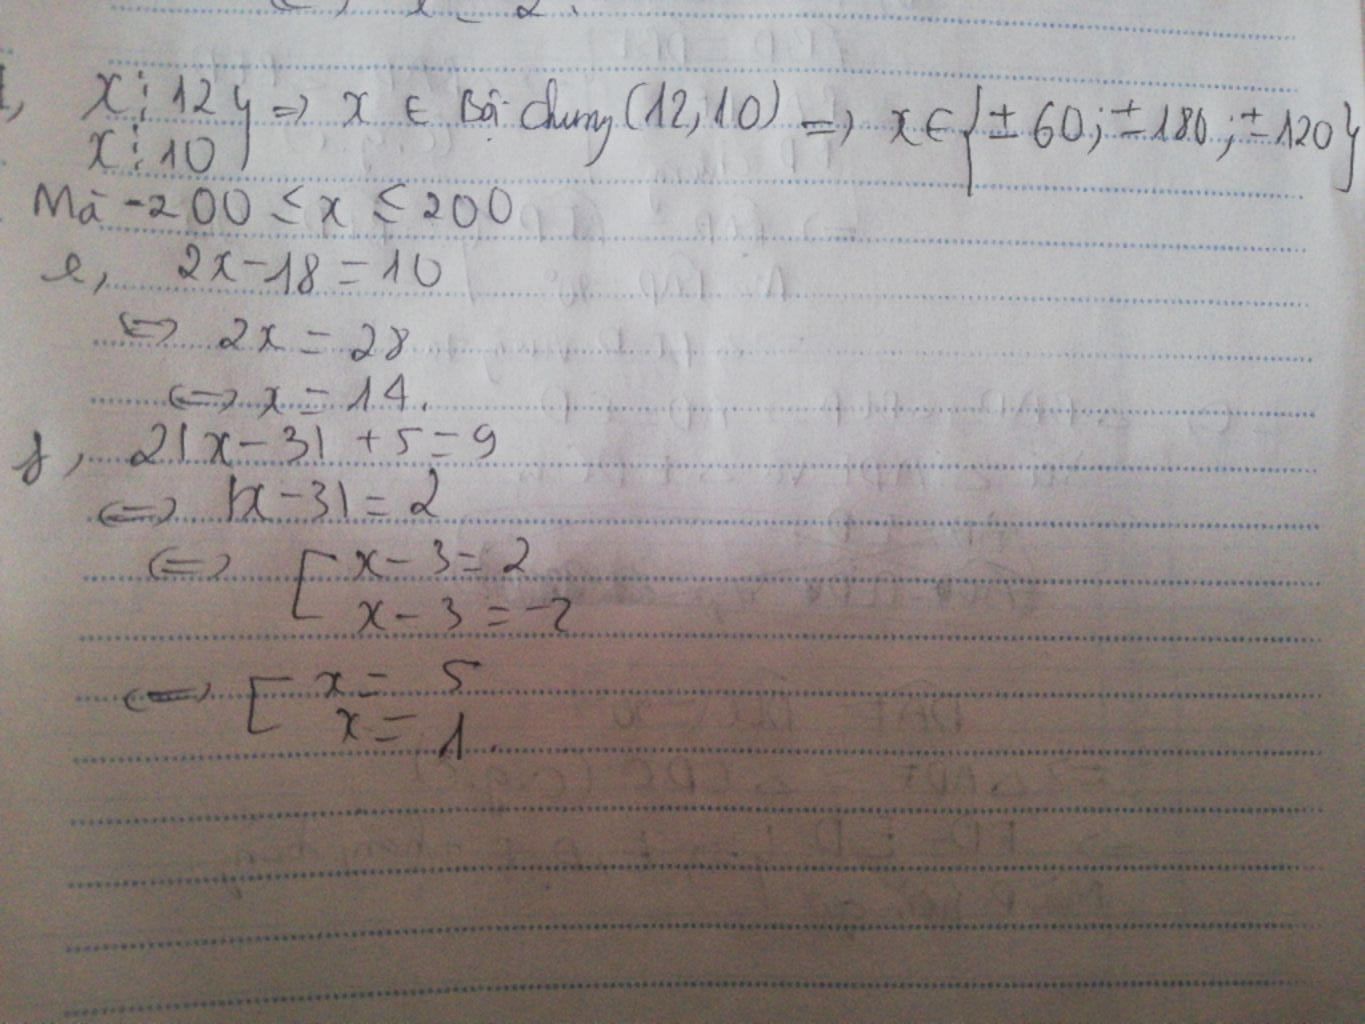 x ⋮ 12 } => x ∈ Bội chung (12, 10) => x ∈ { ± 60; ± 180; ± 120 }
x ⋮ 10
Mà -200 ≤ x ≤ 200
e, 2x - 18 = 10
<=> 2x = 28
<=> x = 14.
f, 2|x - 3| + 5 = 9
<=> |x - 3| = 2
<=> [ x - 3 = 2
x - 3 = -2
<=> [ x = 5
x = 1.